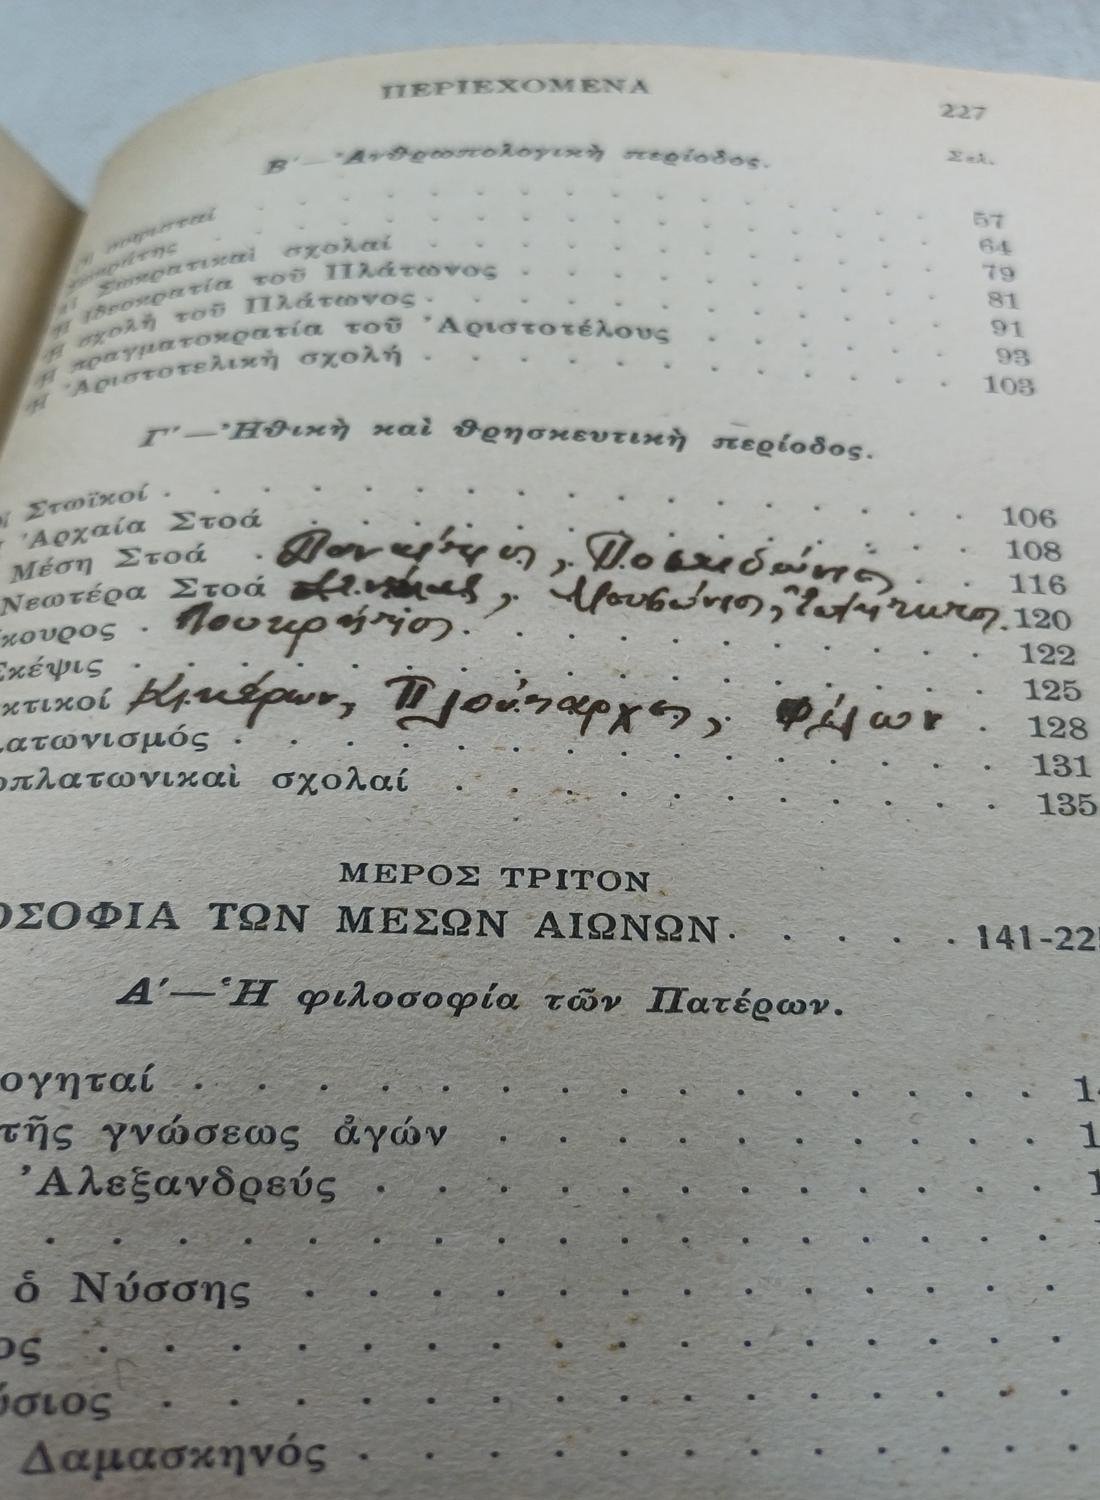 ΠΕΡΙΕΧΟΜΕΝΑ 227
Β′—Ἀνθρωπολογικὴ περίοδος. Σελ.
Οἱ σοφισταί . . . . . . . . . . . . 57
Σωκράτης . . . . . . . . . . . . 64
Αἱ Σωκρατικαὶ σχολαί . . . . . . . . . 79
Ἡ ἰδεοκρατία τοῦ Πλάτωνος . . . . . . . 81
Ἡ σχολὴ τοῦ Πλάτωνος . . . . . . . . 91
Ἡ πραγματοκρατία τοῦ Ἀριστοτέλους . . . . 93
Ἡ Ἀριστοτελικὴ σχολή . . . . . . . . 103
Γ′—Ἠθικὴ καὶ θρησκευτικὴ περίοδος.
οἱ Στωϊκοί . . . . . . . . . . . . 106
Ἀρχαία Στοά . . . . . . . . . . 108
Μέση Στοά . Παναίτιος, Ποσειδώνιος . . 116
Νεωτέρα Στοά Σενέκας, Μουσώνιος, Ἐπίκτητος . 120
κουρος . Λουκρήτιος . . . . . . . . 122
Σκέψις . . . . . . . . . . . . 125
κτικοί Κικέρων, Πλούταρχος, Φίλων . 128
ατωνισμός . . . . . . . . . . . 131
οπλατωνικαὶ σχολαί . . . . . . . . 135
ΜΕΡΟΣ ΤΡΙΤΟΝ
ΟΣΟΦΙΑ ΤΩΝ ΜΕΣΩΝ ΑΙΩΝΩΝ . . . . . 141-22
Α′—Ἡ φιλοσοφία τῶν Πατέρων.
ογηταί . . . . . . . . . . . . . 1
τῆς γνώσεως ἀγών . . . . . . . . . 1
Ἀλεξανδρεύς . . . . . . . . . . . 1
. . . . . . . . . . . . . . . .
ὁ Νύσσης . . . . . . . . . . . .
ος . . . . . . . . . . . . . . .
ύσιος . . . . . . . . . . . . . .
Δαμασκηνός . . . . . . . . . . .